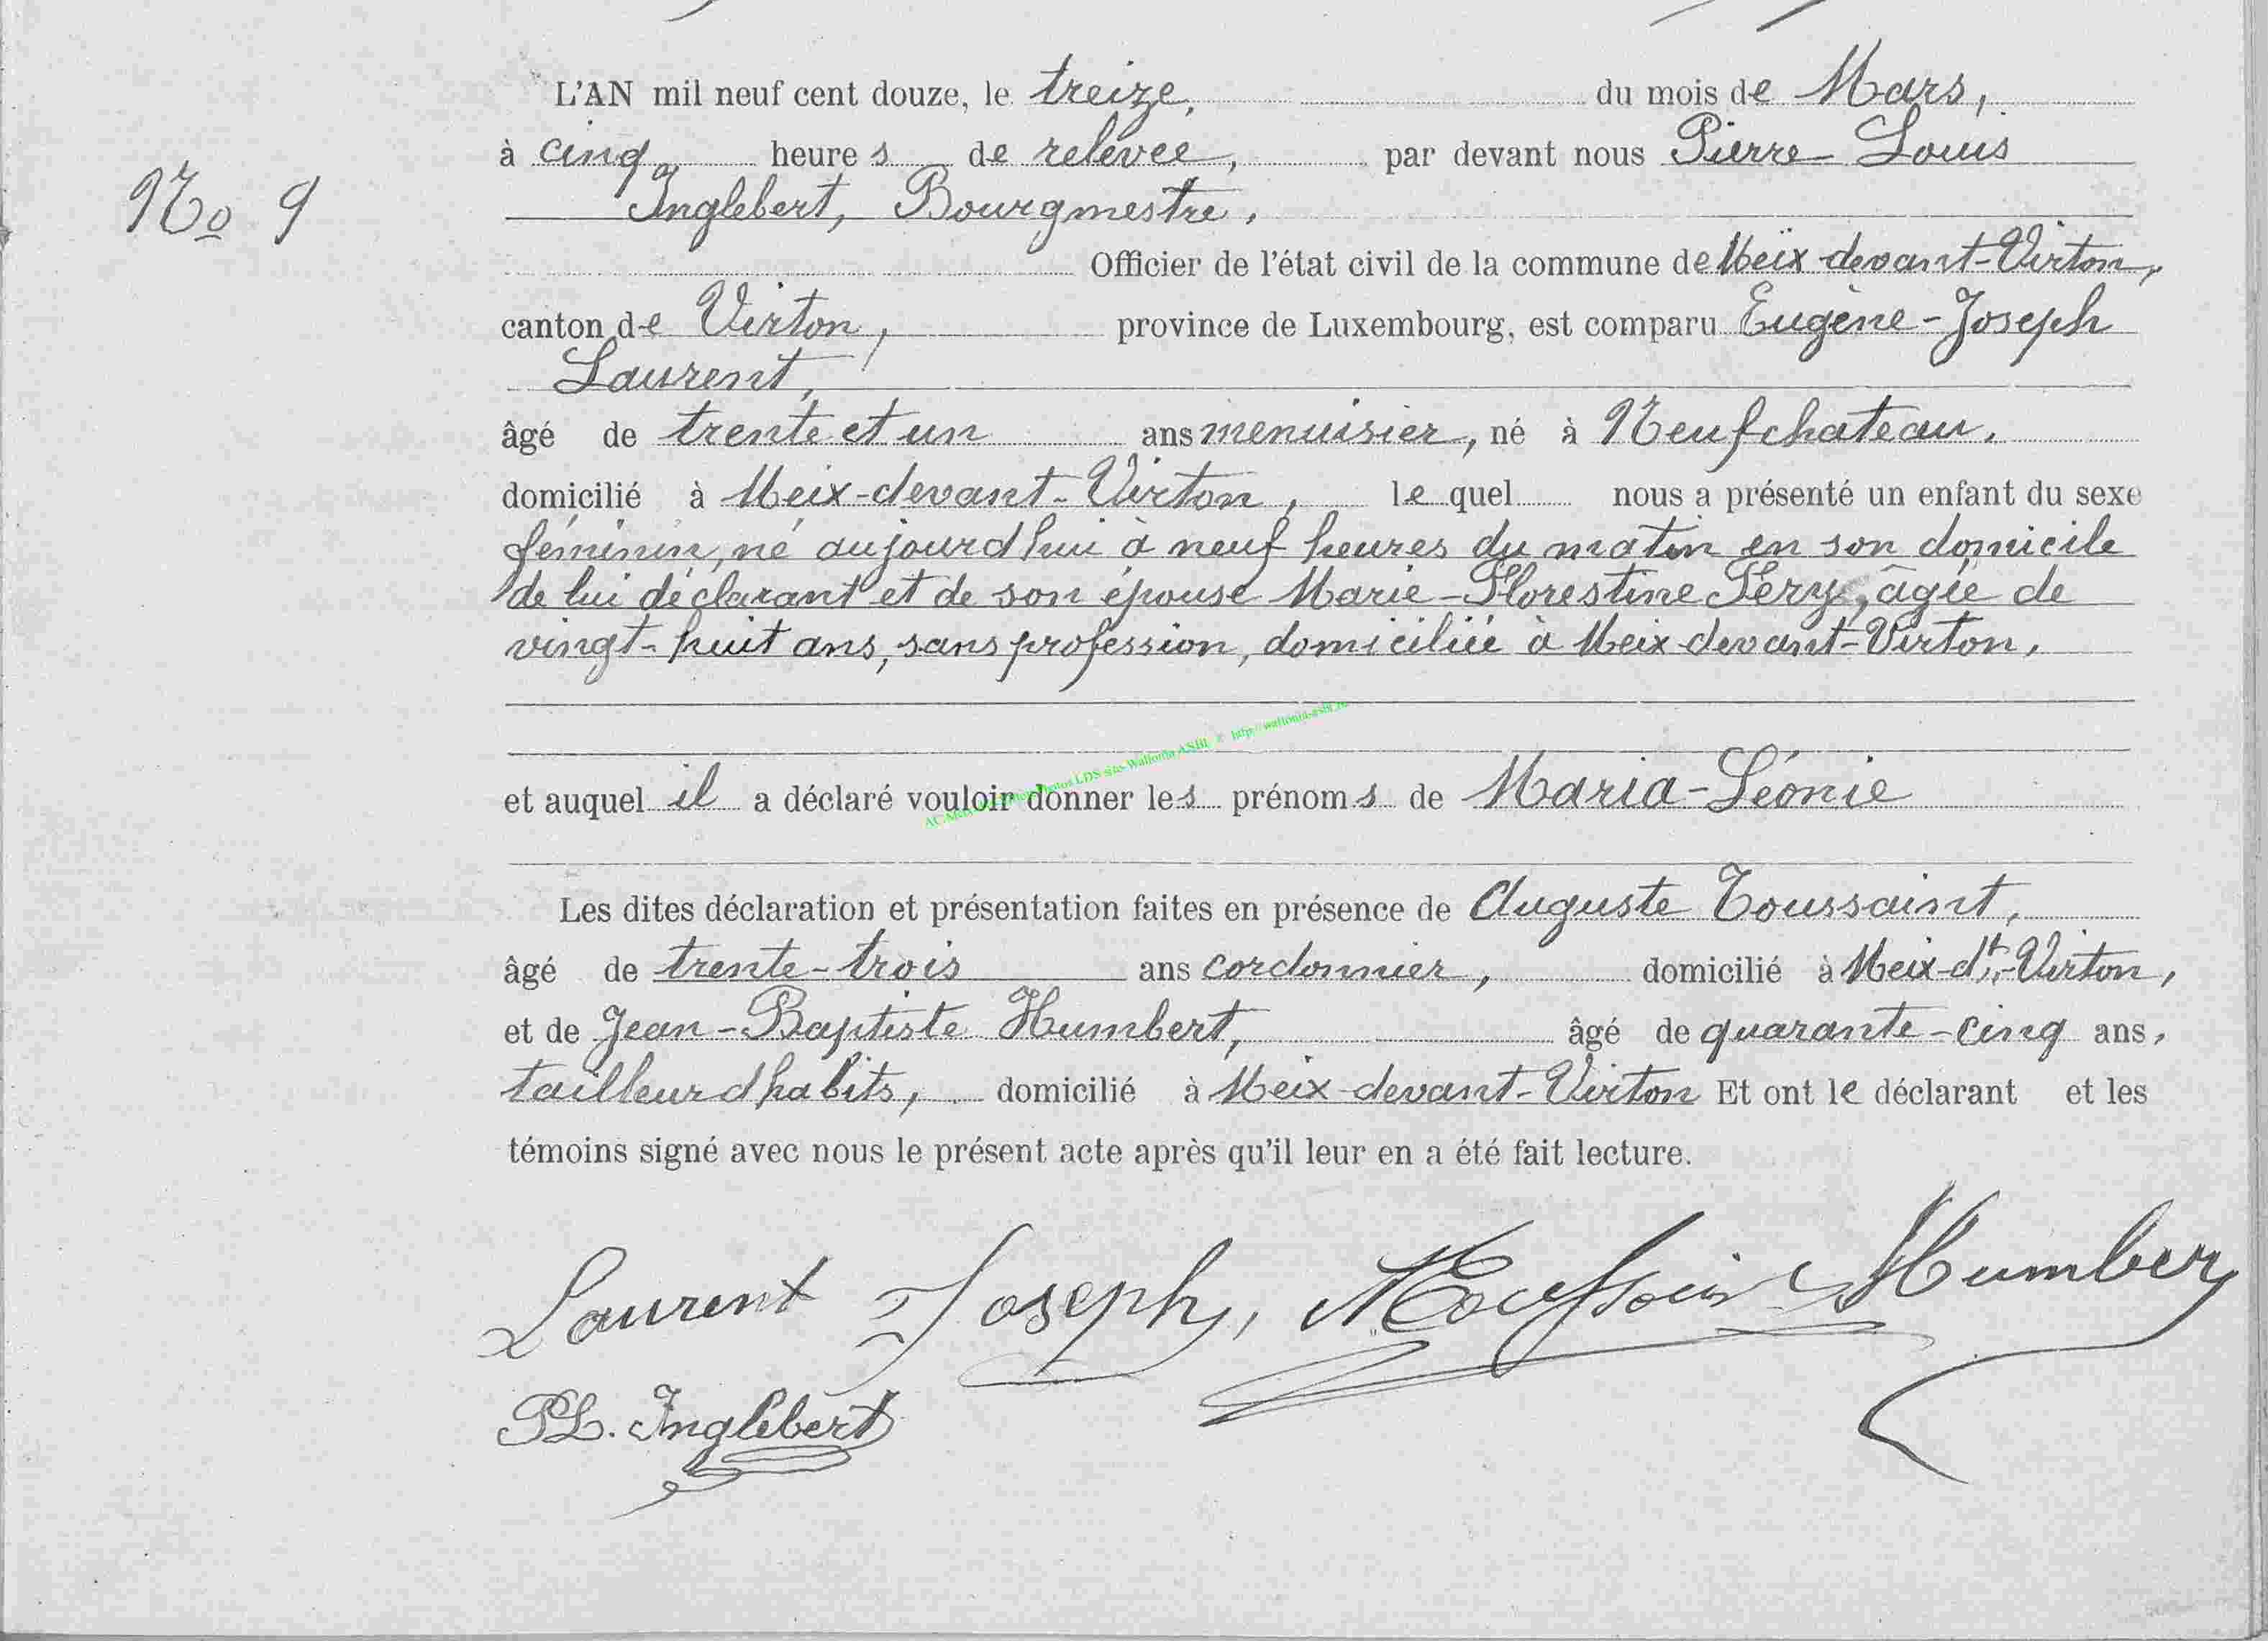 L'AN mil neuf cent douze, le treize, du mois de Mars,
à cinq heures de relevée, par devant nous Pierre Louis
No 9
Inglebert, Bourgmestre,
Officier de l'état civil de la commune de Meix devant-Virton,
canton de Virton, province de Luxembourg, est comparu Eugène-Joseph
Laurent,
âgé de trente et un ans menuisier, né à Neufchateau.
domicilié à Meix-devant-Virton, lequel nous a présenté un enfant du sexe
féminin, né aujourd'hui à neuf heures du matin en son domicile
de lui déclarant et de son épouse Marie-Florestine, âgée de
vingt-huit ans, sans profession, domiciliée à Meix devant-Virton,
et auquel il a déclaré vouloir donner les prénoms de Maria-Léonie
Les dites déclaration et présentation faites en présence de Auguste Toussaint,
âgé de trente-trois ans cordonnier, domicilié à Meix-dt-Virton,
et de Jean-Baptiste Humbert, âgé de quarante-cinq ans,
tailleur d'habits, domicilié à Meix-devant-Virton Et ont le déclarant et les
témoins signé avec nous le présent acte après qu'il leur en a été fait lecture.
Laurent Joseph, Humbert
PL. Inglebert